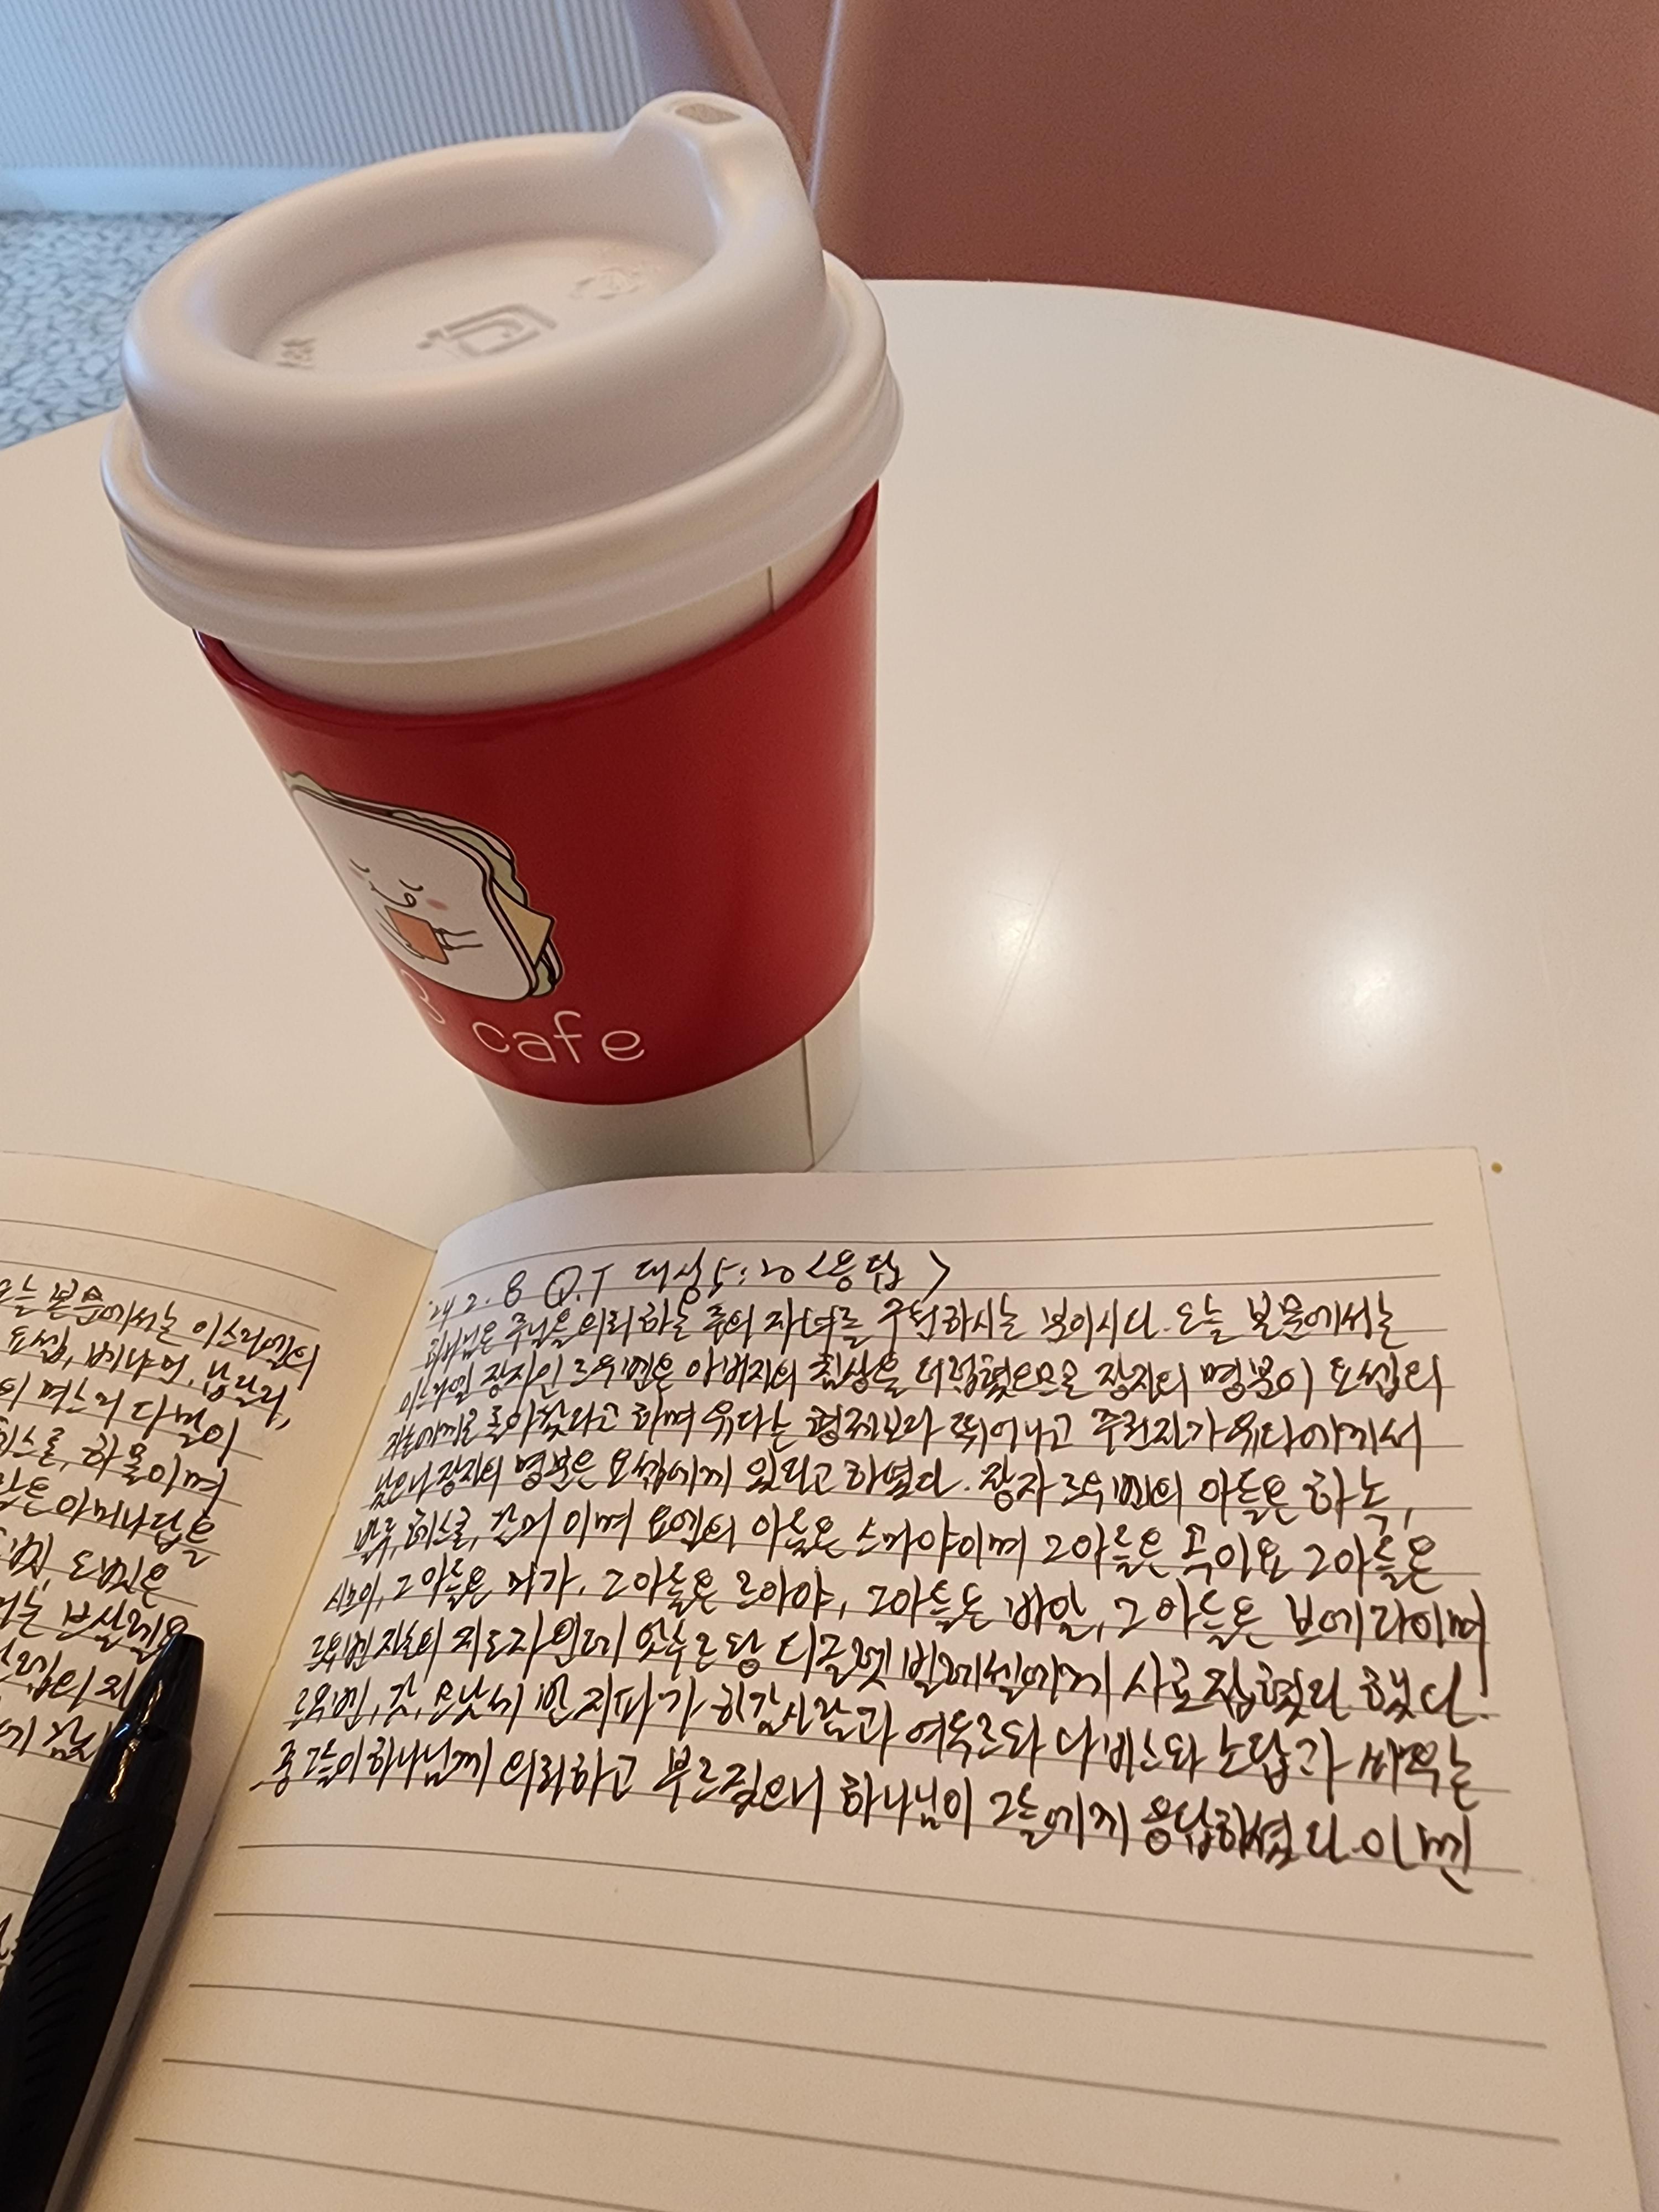 cafe
오늘 본문에서는 이스라엘의
요셉, 베냐민, 납달리,
의 며느리 다말이
헤스론, 하물이며
람은 아미나답을
'24. 2. 8 Q.T 대상5:20 <응답>
하나님은 주님을 의뢰하는 주의 자녀를 구원하시는 분이시다. 오늘 본문에서는
이스라엘 장자인 르우벤은 아버지의 침상을 더럽혔으므로 장자의 명분이 요셉의
자손에게로 돌아갔다고 하며 유다는 형제보다 뛰어나고 주권자가 유다에게서
났으나 장자의 명분은 요셉에게 있다고 하였다. 장자 르우벤의 아들은 하녹,
발루, 헤스론, 갈미 이며 요엘의 아들은 스마야이며 그아들은 곡이요 그아들은
시므이, 그 아들은 미가, 그아들은 르아야, 그아들은 바알, 그 아들은 브에라이며
르우벤 자손의 지도자인데 앗수르왕 디글랏빌레셀에게 사로잡혔다 했다.
르우벤, 갓, 므낫세 반 지파가 하갈사람과 여두르와 나비스와 노답과 싸우는
중 그들이 하나님께 의뢰하고 부르짖으니 하나님이 그들에게 응답하셨다. 이